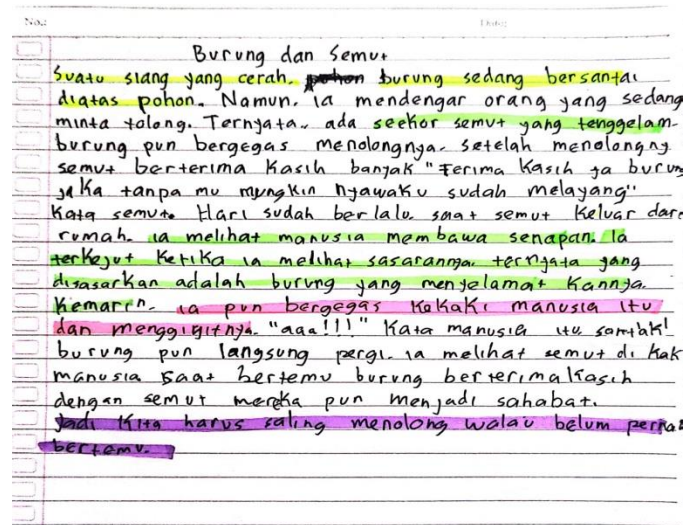 No.: Date:
Burung dan Semut
Suatu siang yang cerah. burung sedang bersantai
diatas pohon. Namun. ia mendengar orang yang sedang
minta tolong. Ternyata. ada seekor semut yang tenggelam.
burung pun bergegas menolongnya. setelah menolongny
semut berterima kasih banyak "Terima kasih ya burung
jika tanpa mu mungkin nyawaku sudah melayang"
kata semut. Hari sudah berlalu. saat semut keluar dari
rumah. ia melihat manusia membawa senapan. Ia
terkejut ketika ia melihat sasarannya. ternyata yang
disasarkan adalah burung yang menyelamatkannya.
kemarin. ia pun bergegas kekaki manusia itu
dan menggigitnya. "aaa!!!" kata manusia itu
burung pun langsung pergi. ia melihat semut di kak
manusia saat bertemu burung berterimakasih
dengan semut mereka pun menjadi sahabat.
Jadi kita harus saling menolong walau belum
bertemu.